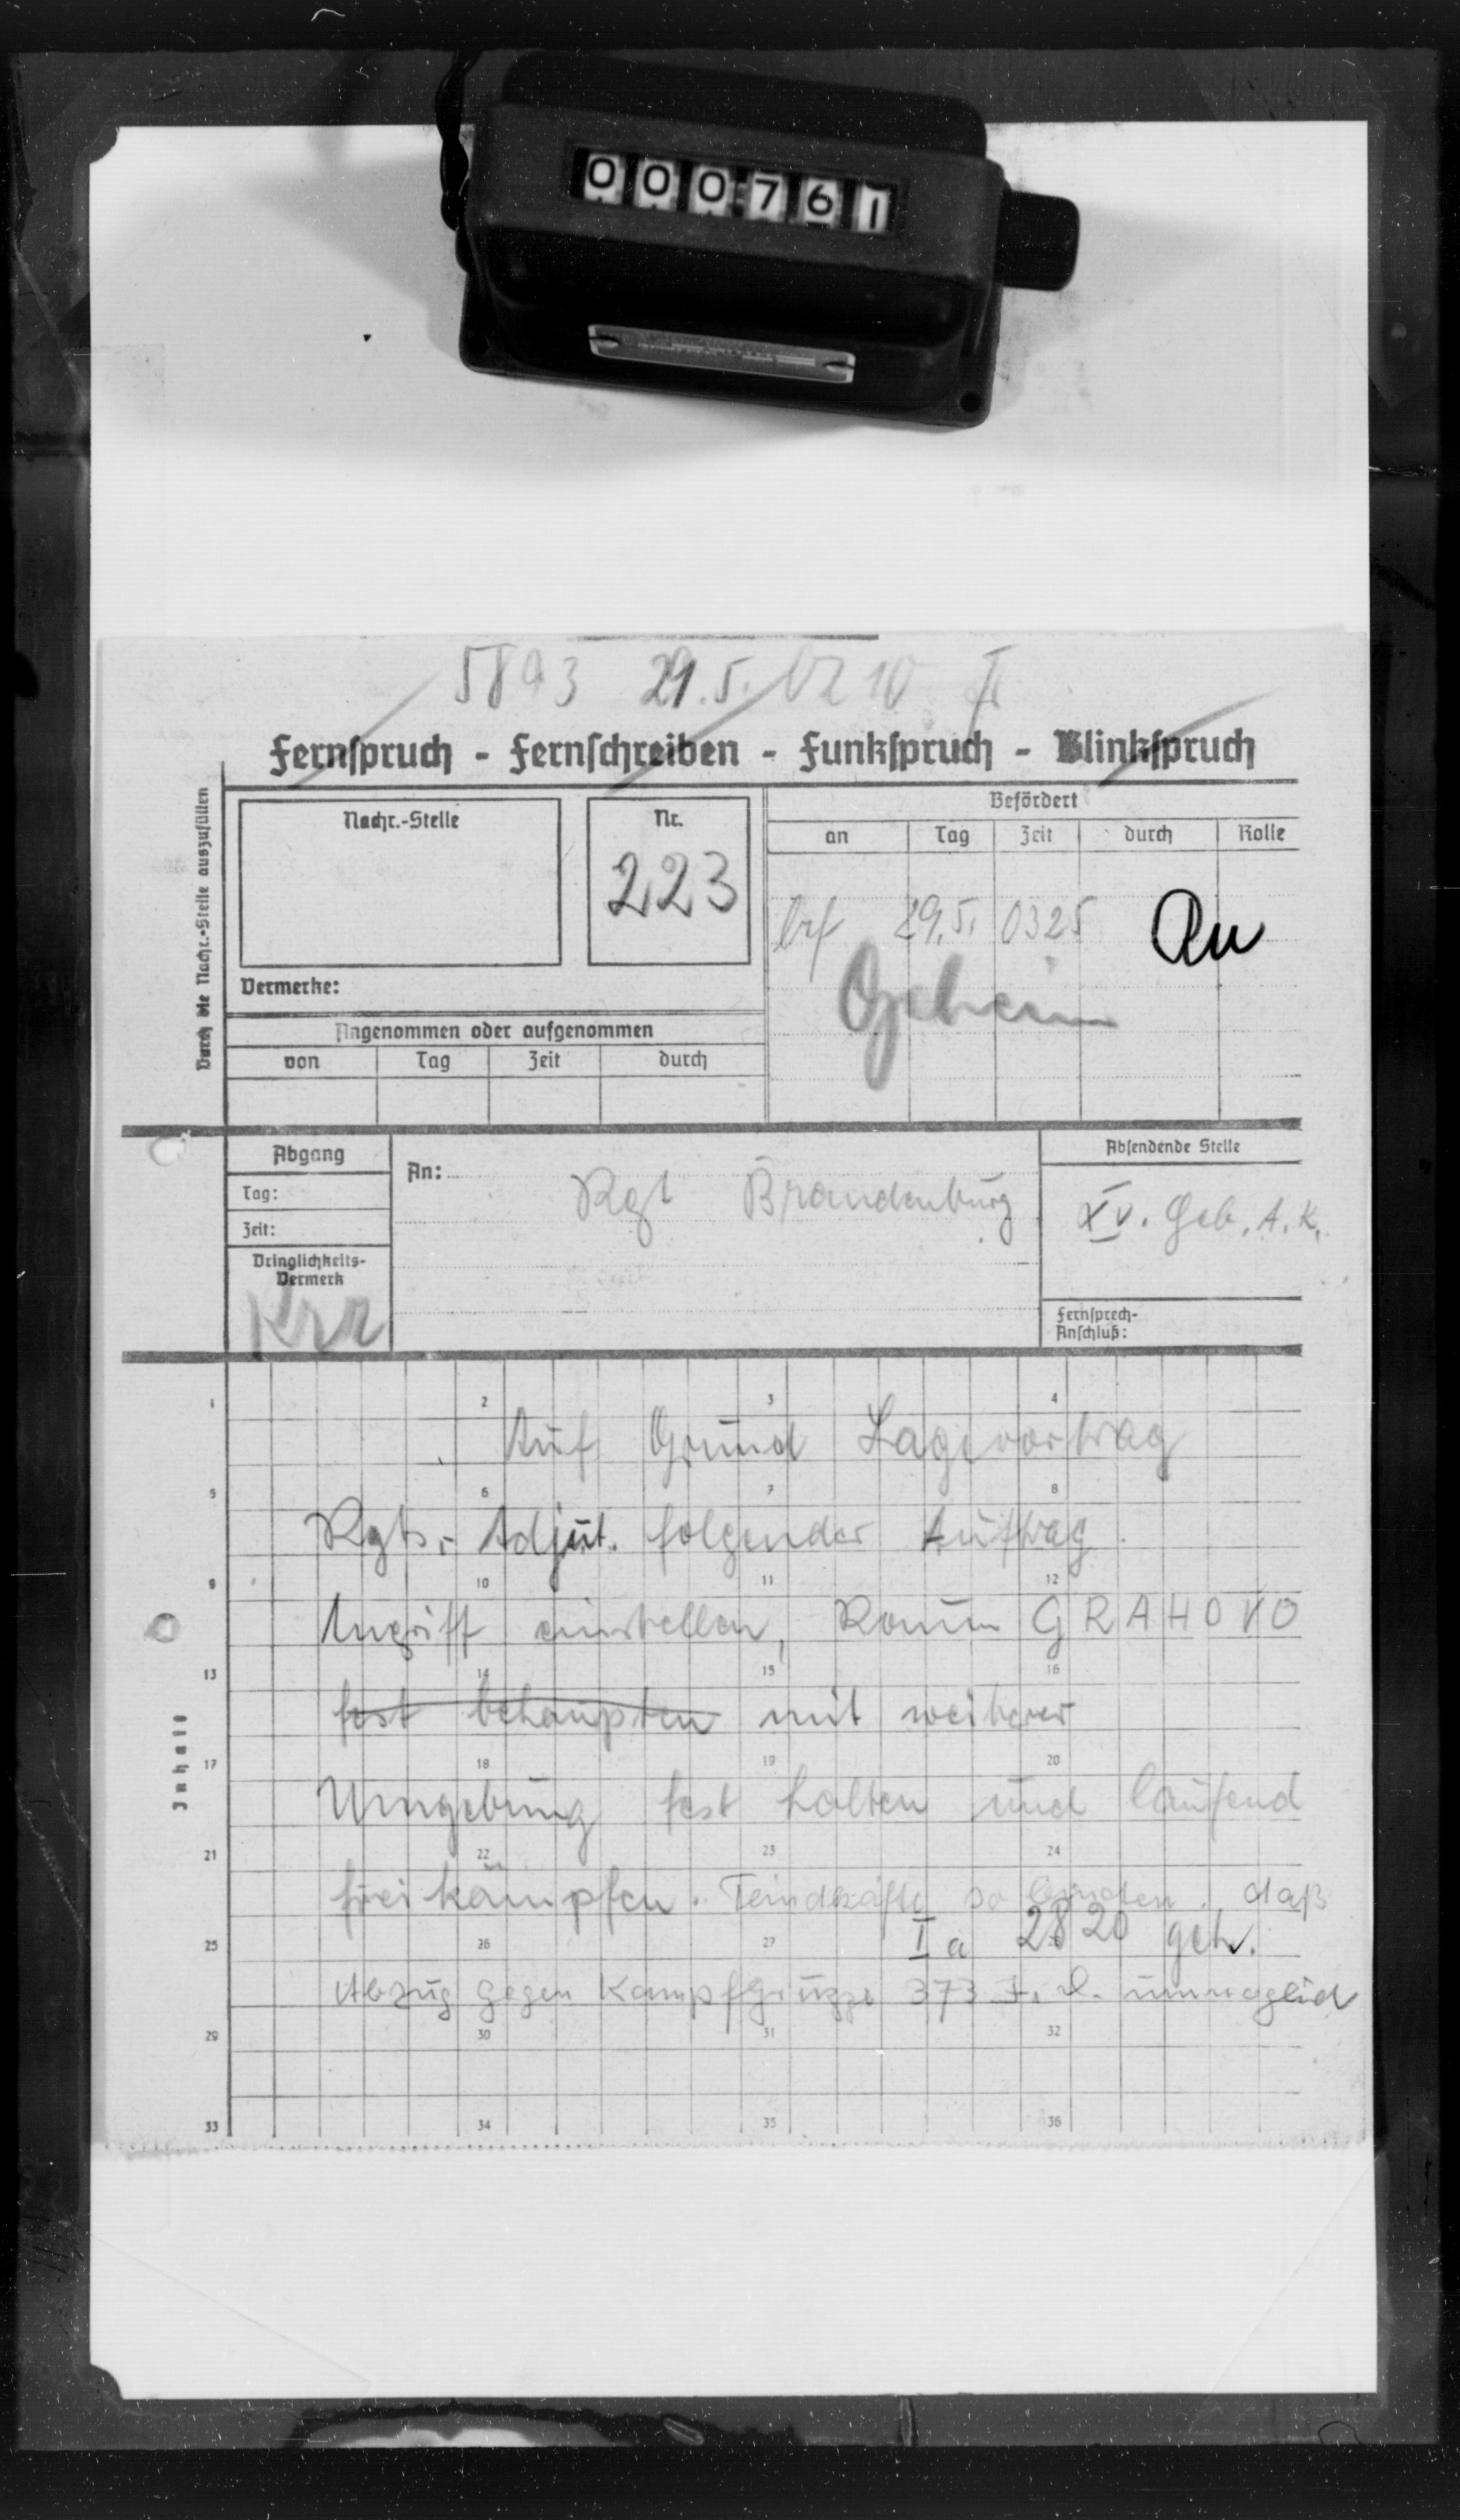 000761
5893 29.5. 0210
Fernspruch - Fernschreiben - Funkspruch - Blinkspruch
Durch die Nachr.-Stelle auszufüllen
Nachr.-Stelle
Nr.
223
Befördert
an Tag Zeit durch Rolle
bef 29.5. 0325
Geheim
Vermerke:
Angenommen oder aufgenommen
von Tag Zeit durch
Abgang
Tag:
Zeit:
Dringlichkeits-
Vermerk
Krr
An: Rgt Brandenburg
Absendende Stelle
XV. Geb. A. K.
Fernsprech-
Anschluß:
Inhalt
1 2 3 4
Auf Grund Lagevortrag
5 6 7 8
Rgts.- Adjut. folgender Auftrag.
9 10 11 12
Angriff einstellen, Raum GRAHOVO
13 14 15 16
fest behaupten mit weiterer
17 18 19 20
Umgebung fest halten und laufend
21 22 23 24
freikämpfen. Feindkräfte so binden, daß
Ia 2820 geh.
25 26 27
Abzug gegen Kampfgruppe 373 I. D. unmöglich
29 30 31 32
33 34 35 36